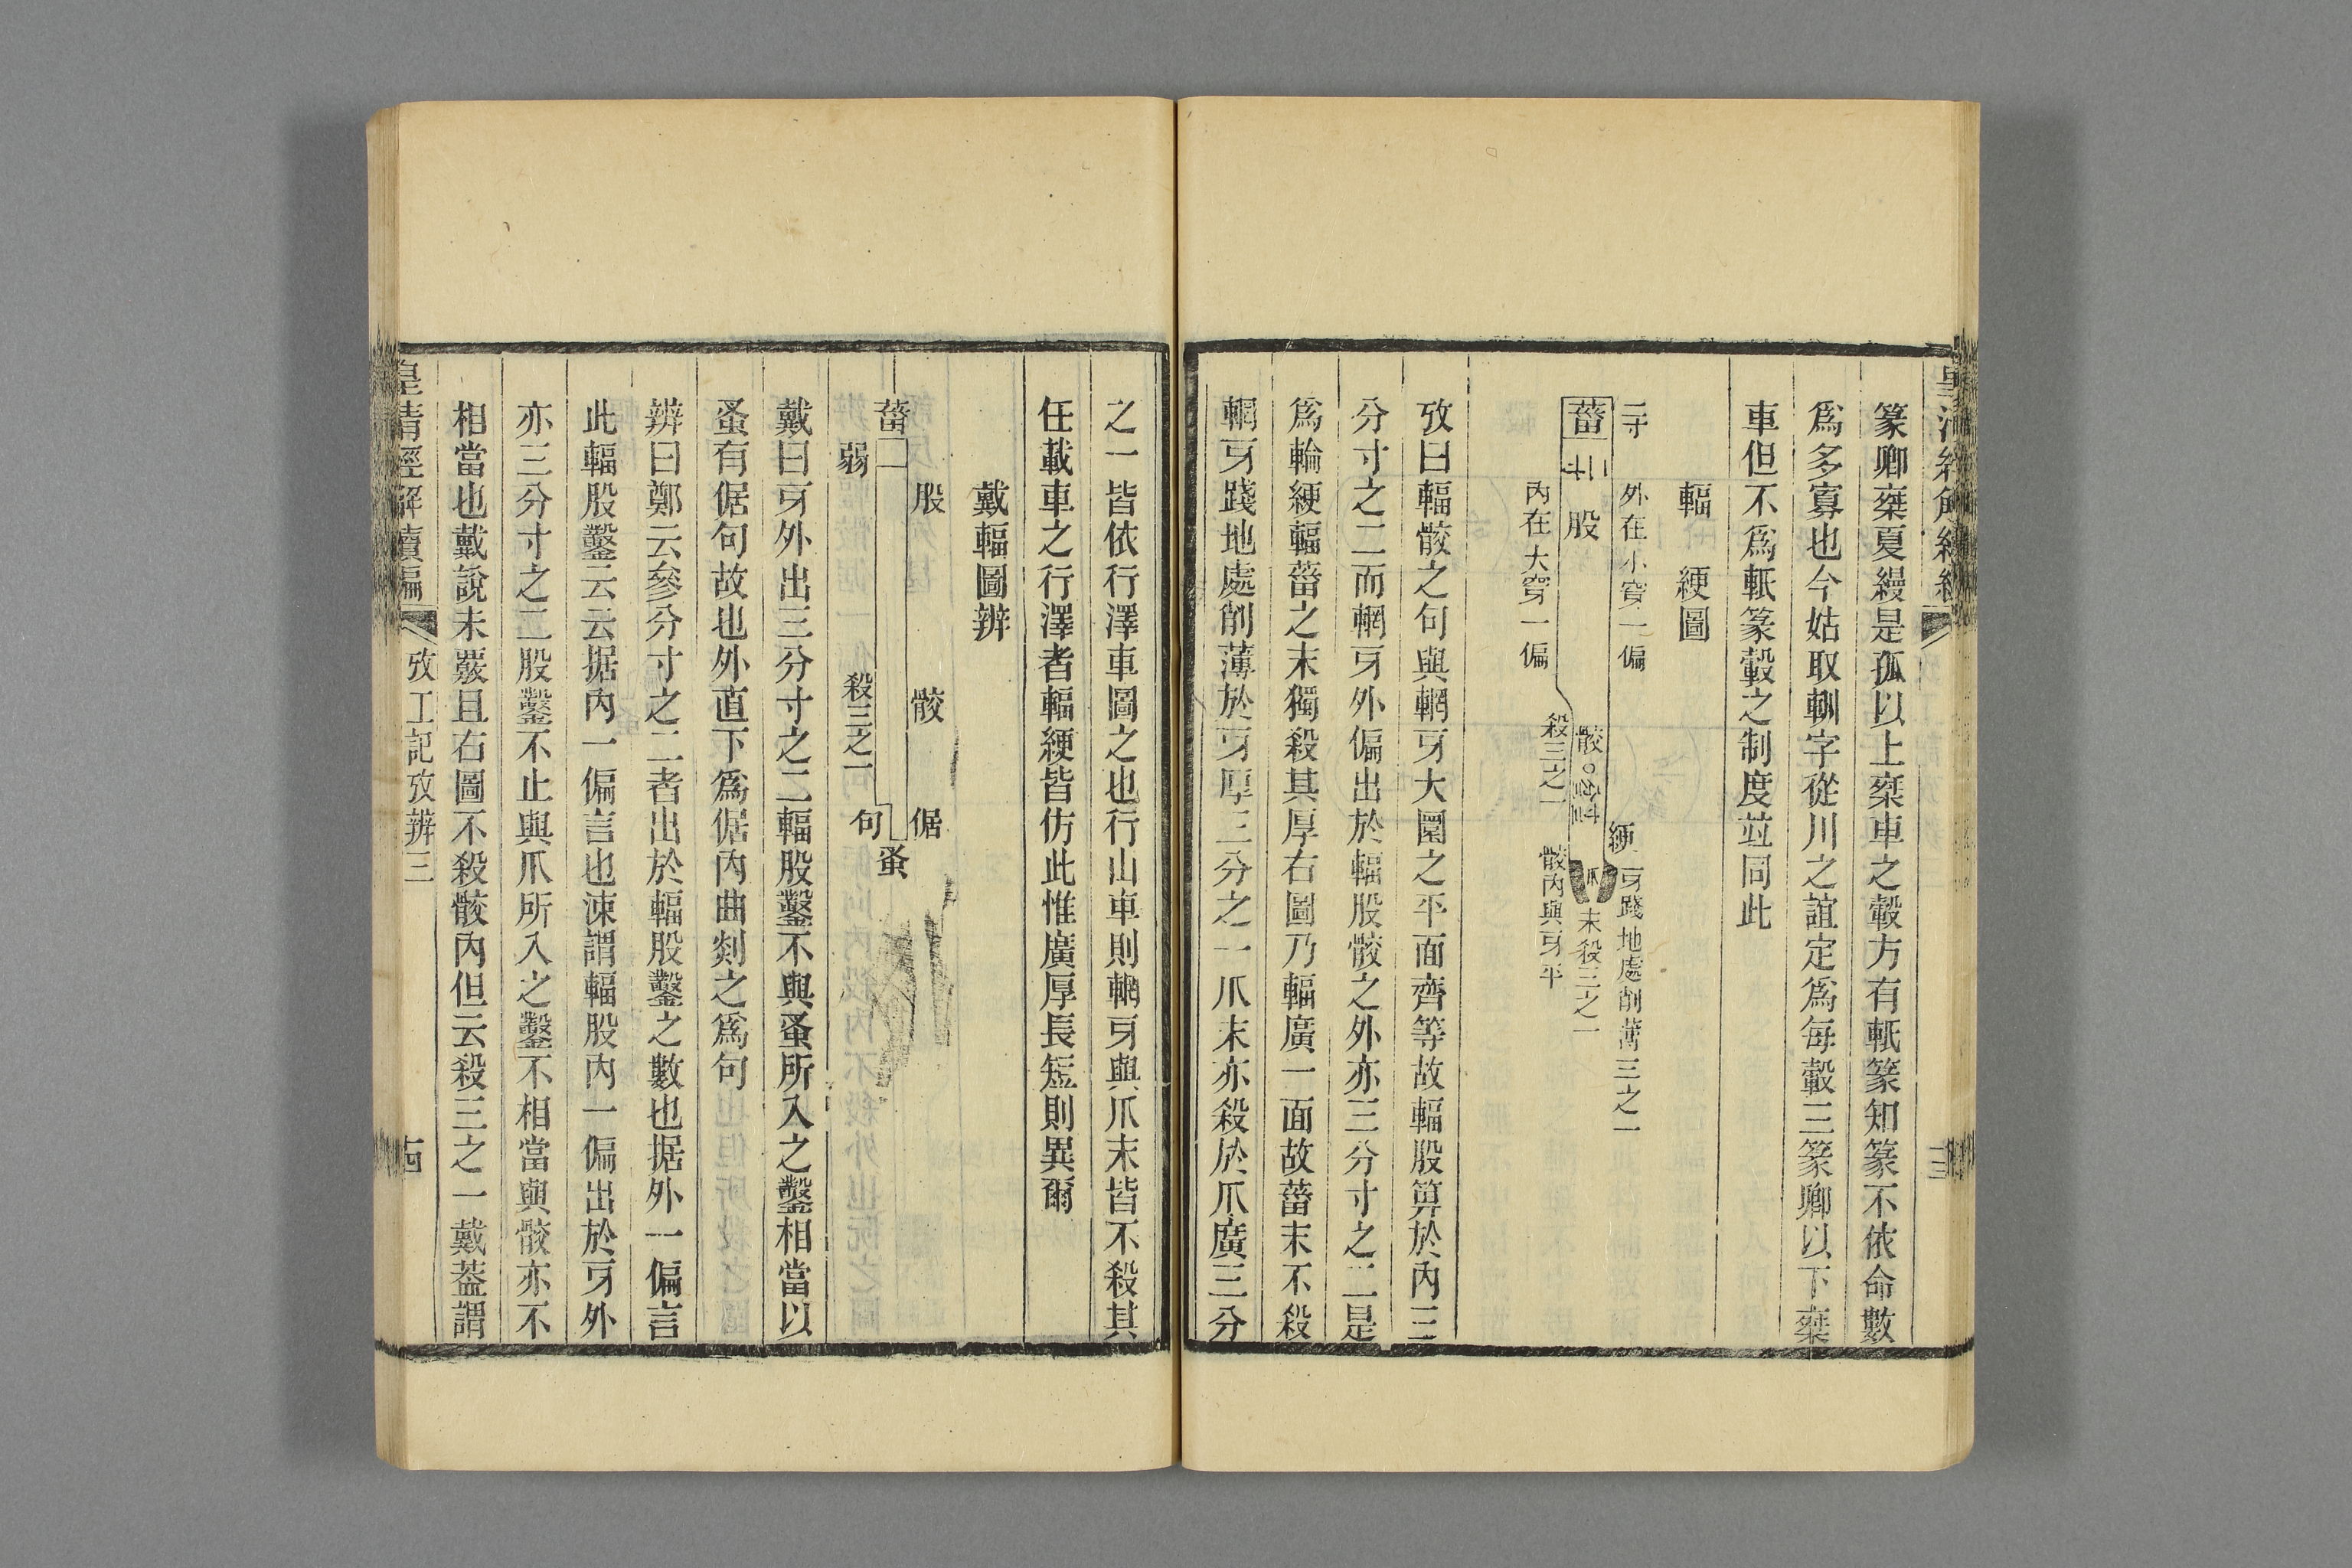 篆卿䅵夏縵是孤以上䅵車之轂方有軝篆知篆不依命數
爲多寡也今姑取軓字從川之誼定爲每轂三篆卿以下䅵
車但不爲軝篆轂之制度竝同此
輻 綆圖
二寸 外在小穿一偏 綆 牙踐地處削薄三之一
菑 二寸 股 骹 爪 末殺三之一
內在大穿一偏 殺三之一 骹內與牙平
攷曰輻骹之句與輞牙大圜之平面齊等故輻股箅於內三
分寸之二而輞牙外偏出於輻股骹之外亦三分寸之二是
爲輪綆輻菑之末獨殺其厚右圖乃輻廣一面故菑末不殺
輞牙踐地處削薄於牙厚三分之一爪末亦殺於爪廣三分
之一皆依行澤車圖之也行山車則輞牙與爪末皆不殺其
任載車之行澤者輻綆皆仿此惟廣厚長短則異爾
戴輻圖辨
股 骹 倨
菑 蚤
弱 殺三之一 句
戴曰牙外出三分寸之二輻股鑿不與蚤所入之鑿相當以
蚤有倨句故也外直下爲倨內曲剡之爲句
辨曰鄭云參分寸之二者出於輻股鑿之數也据外一偏言
此輻股鑿云云据內一偏言也涑謂輻股內一偏出於牙外
亦三分寸之二股鑿不止與爪所入之鑿不相當與骹亦不
相當也戴說未覈且右圖不殺骹內但云殺三之一戴葢謂
皇清經解續編 攷工記攷辨三 十四